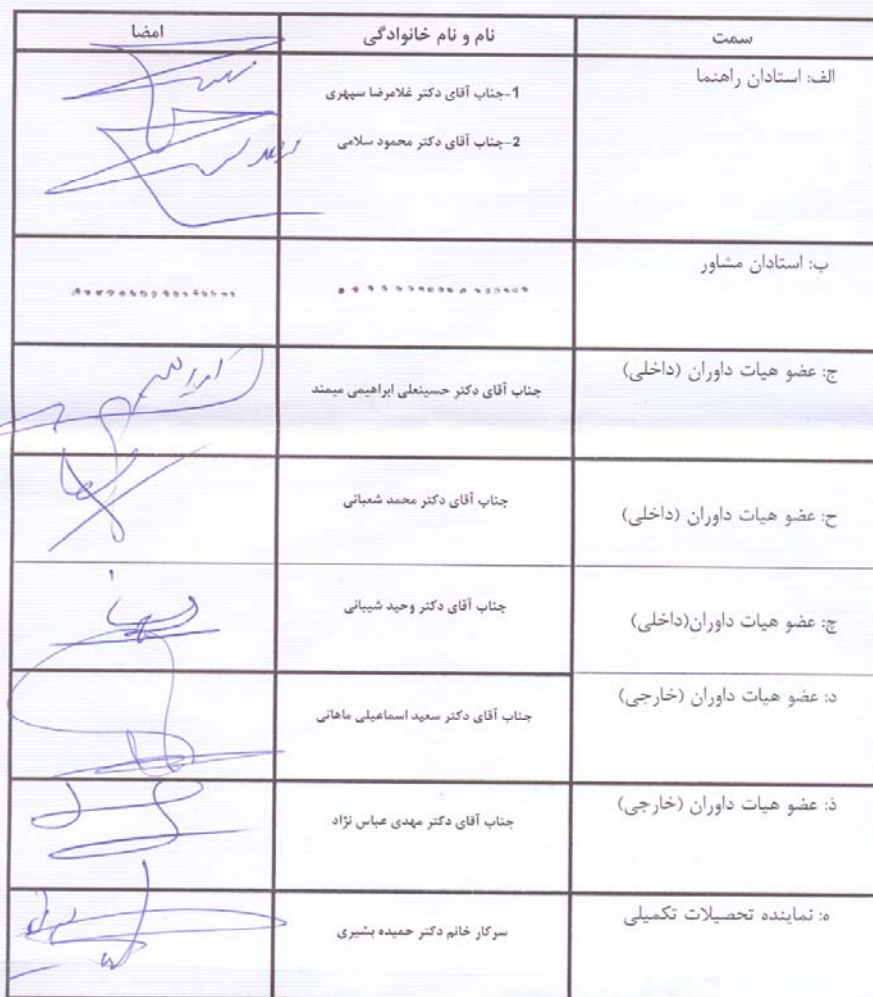 سمت	نام و نام خانوادگی	امضا
الف: استادان راهنما
1-جناب آقای دکتر غلامرضا سپهری
2-جناب آقای دکتر محمود سلامی
ب: استادان مشاور
ج: عضو هیات داوران (داخلی)	جناب آقای دکتر حسینعلی ابراهیمی میمند
ح: عضو هیات داوران (داخلی)	جناب آقای دکتر محمد شعبانی
چ: عضو هیات داوران(داخلی)	جناب آقای دکتر وحید شیبانی
د: عضو هیات داوران (خارجی)	جناب آقای دکتر سعید اسماعیلی ماهانی
ذ: عضو هیات داوران (خارجی)	جناب آقای دکتر مهدی عباس نژاد
ه: نماینده تحصیلات تکمیلی	سرکار خانم دکتر حمیده بشیری